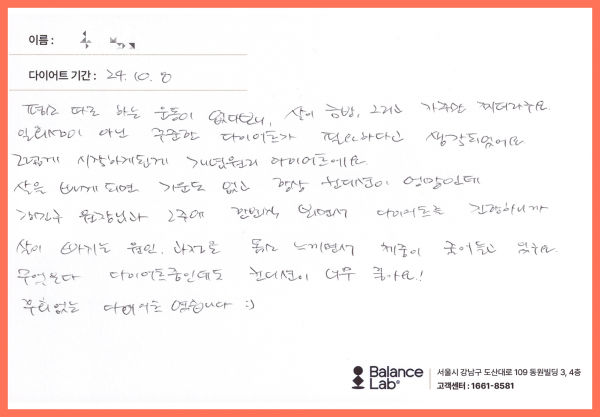 이름 :
다이어트 기간 : 24. 10. 8
평소 따로 하는 운동이 없다보니, 살이 금방, 그리고 가득만 찌더라구요
일회성이 아닌 꾸준한 다이어트가 필요하다고 생각되었어요
그렇게 시작하게된게 개념원리 다이어트예요.
살을 빼게 되면 기운도 없고 항상 컨디션이 엉망인데
원장님과 2주에 한번씩 보면서 다이어트를 진행하니까
살이 빠지는 원인, 과정을 몸소 느끼면서 체중이 줄어들고 있어요.
무엇보다 다이어트중인데도 컨디션이 너무 좋아요!
후회없는 다이어트 였습니다 :)
Balance Lab®
서울시 강남구 도산대로 109 동원빌딩 3, 4층
고객센터 : 1661-8581